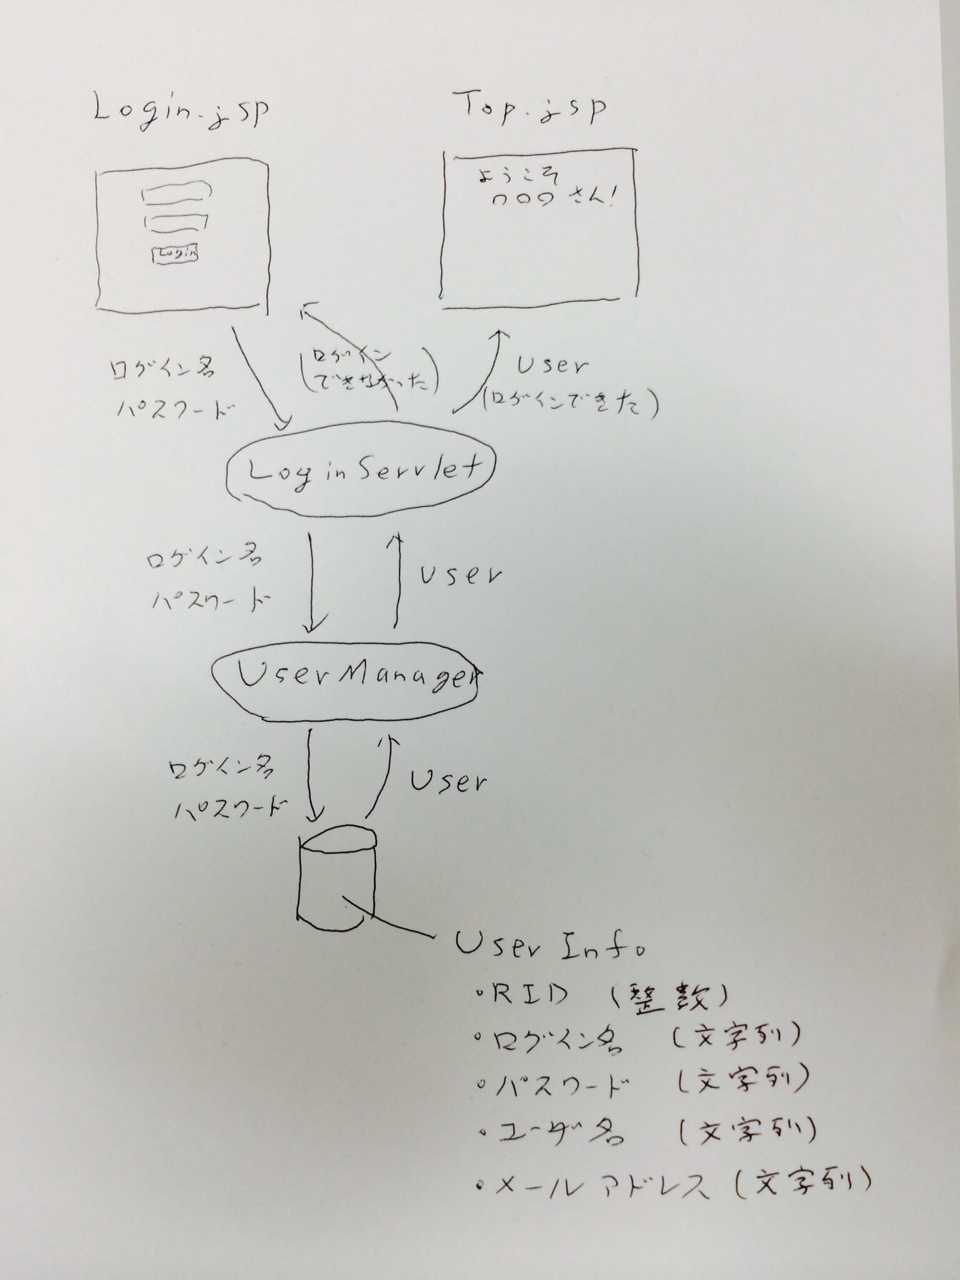 Login.jsp
Top.jsp
Login
ようこそ
○○○さん!
ログイン名
パスワード
(ログイン
できなかった)
User
(ログインできた)
LoginServlet
ログイン名
パスワード
User
UserManager
ログイン名
パスワード
User
User Info
・RID (整数)
・ログイン名 (文字列)
・パスワード (文字列)
・ユーザ名 (文字列)
・メールアドレス (文字列)